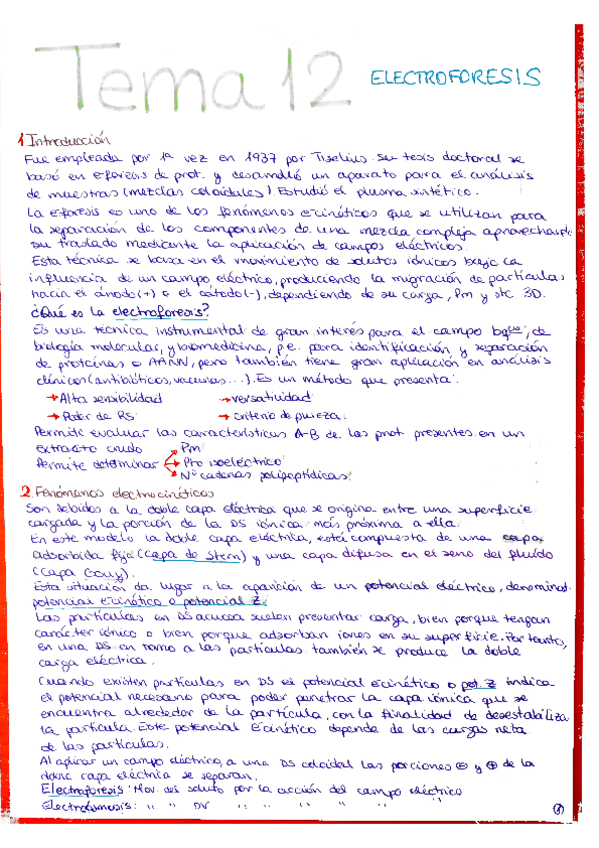 Tema 12 ELECTROFORESIS
1 Introducción
Fue empleada por 1ª vez en 1937 por Tiselius. Su tesis doctoral se
basó en eforesis de prot. y desarrolló un aparato para el análisis
de muestras (mezclas coloidales). Estudió el plasma sintético.
La eforesis es uno de los fenómenos ecinéticos que se utilizan para
la separación de los componentes de una mezcla compleja aprovechando
su traslado mediante la aplicación de campos eléctricos.
Esta técnica se basa en el movimiento de solutos iónicos bajo la
influencia de un campo eléctrico, produciendo la migración de partículas
hacia el ánodo (+) o el cátodo (-), dependiendo de su carga, Pm y stc 3D.
¿Qué es la electroforesis?
Es una técnica instrumental de gran interés para el campo bqco, de
biología molecular, y biomedicina, p.e. para identificación y separación
de proteínas o AANN, pero también tiene gran aplicación en análisis
clínicos (antibióticos, vacunas...). Es un método que presenta:
→ Alta sensibilidad → versatilidad
→ Poder de RS → criterio de pureza.
Permite evaluar las características A-B de las prot presentes en un
extracto crudo → Pm
Permite determinar → Pto isoeléctrico
→ Nº cadenas polipeptídicas
2 Fenómenos electrocinéticos
Son debidos a la doble capa eléctrica que se origina entre una superficie
cargada y la porción de la DS iónica más próxima a ella.
En este modelo la doble capa eléctrica, está compuesta de una capa
adsorbida fija (capa de Stern) y una capa difusa en el seno del fluido
(capa Gouy).
Esta situación da lugar a la aparición de un potencial eléctrico, denominad.
potencial ecinético o potencial Z.
Las partículas en DS acuosa suelen presentar carga, bien porque tengan
carácter iónico o bien porque adsorban iones en su superficie. Por tanto,
en una DS en torno a las partículas también se produce la doble
carga eléctrica.
Cuando existen partículas en DS el potencial ecinético o pot. Z indica
el potencial necesario para poder penetrar la capa iónica que se
encuentra alrededor de la partícula, con la finalidad de desestabiliza.
la partícula. Este potencial ecinético depende de las cargas neta
de las partículas.
Al aplicar un campo eléctrico, a una DS coloidal las porciones ⊕ y ⊖ de la
doble capa eléctrica se separan.
Electroforesis: Mov. del soluto por la acción del campo eléctrico
Electroósmosis: " " DV " " " " "
①